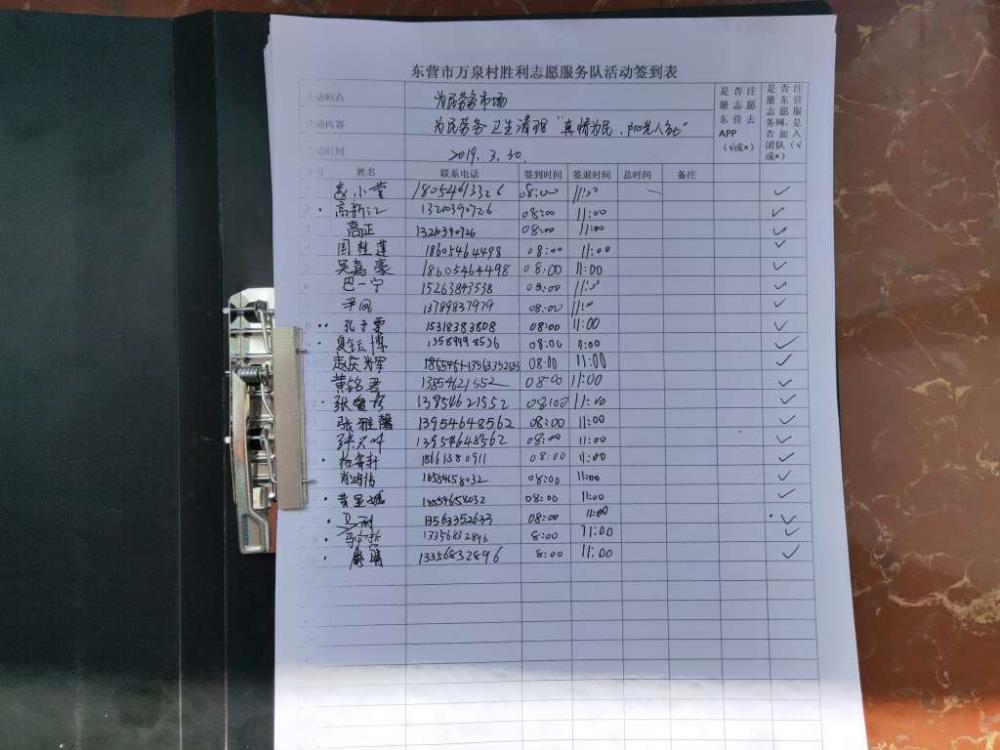 东营市万泉村胜利志愿服务队活动签到表
活动地点 为民劳务市场
活动内容 为民劳务卫生清理“真情为民，阳光人和”
活动时间 2019.3.30.
是否注册志愿东营去APP（√或×）
是否注册东营志愿服务网，是否加入团队（√或×）
序号 姓名 联系电话 签到时间 签退时间 总时间 备注
赵小堂 18054613326 08:00 11:00 ✓
高新江 1320390726 08:00 11:00 ✓
高正 1320390726 08:00 11:00 ✓
周桂莲 18605464498 08:00 11:00 ✓
吴嘉豪 18605464498 08:00 11:00 ✓
巴一宁 15263843538 08:00 11:00 ✓
13789837979 08:00 11:00 ✓
孔子雯 15318383808 08:00 11:00 ✓
08:00 11:00 ✓
赵庆辉 08:00 11:00 ✓
黄铭君 13854621552 08:00 11:00 ✓
13954621552 08:00 11:00 ✓
张雅馨 13954648562 08:00 11:00 ✓
13954648562 08:00 11:00 ✓
18661380911 08:00 11:00 ✓
08:00 11:00 ✓
08:00 11:00 ✓
13563352633 08:00 11:00 ✓
13356832896 8:00 11:00 ✓
13356832896 8:00 11:00 ✓